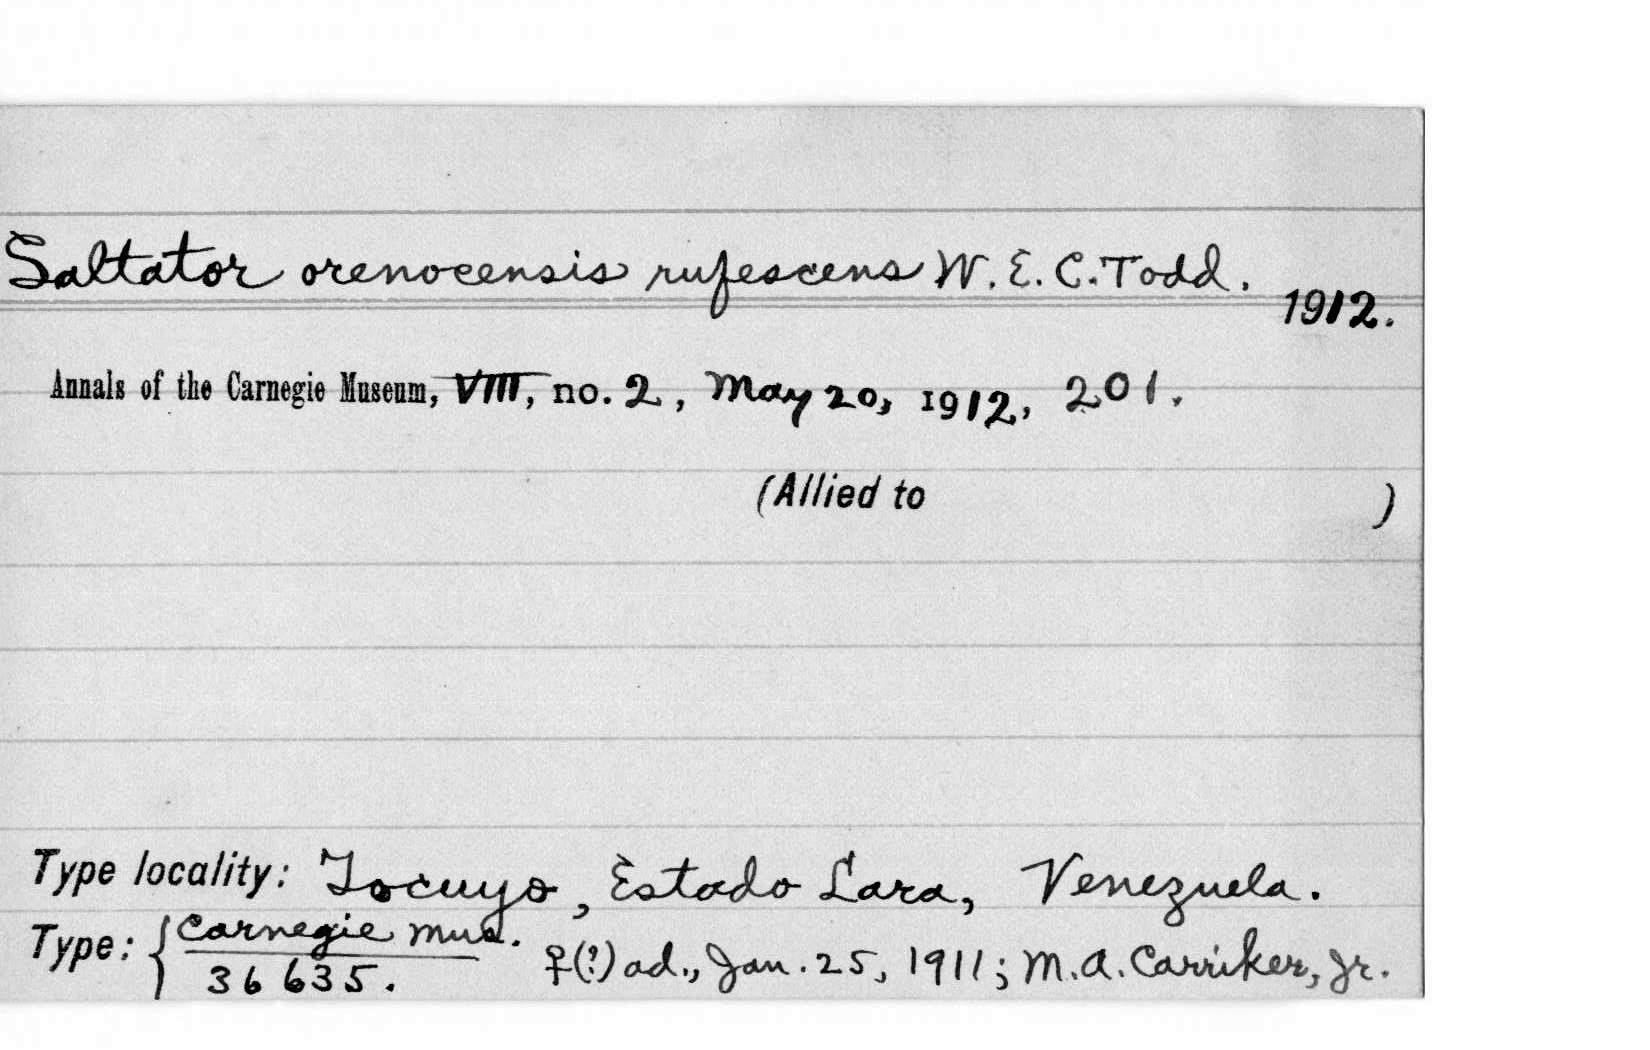 Saltator orenocensis rufescens W. E. C. Todd.
1912.
Annals of the Carnegie Museum, VIII, no. 2, May 20, 1912, 201.
(Allied to )
Type locality: Tocuyo, Estado Lara, Venezuela.
Type: { Carnegie Mus.
36635. ♀(?) ad., Jan. 25, 1911; M. A. Carriker, Jr.